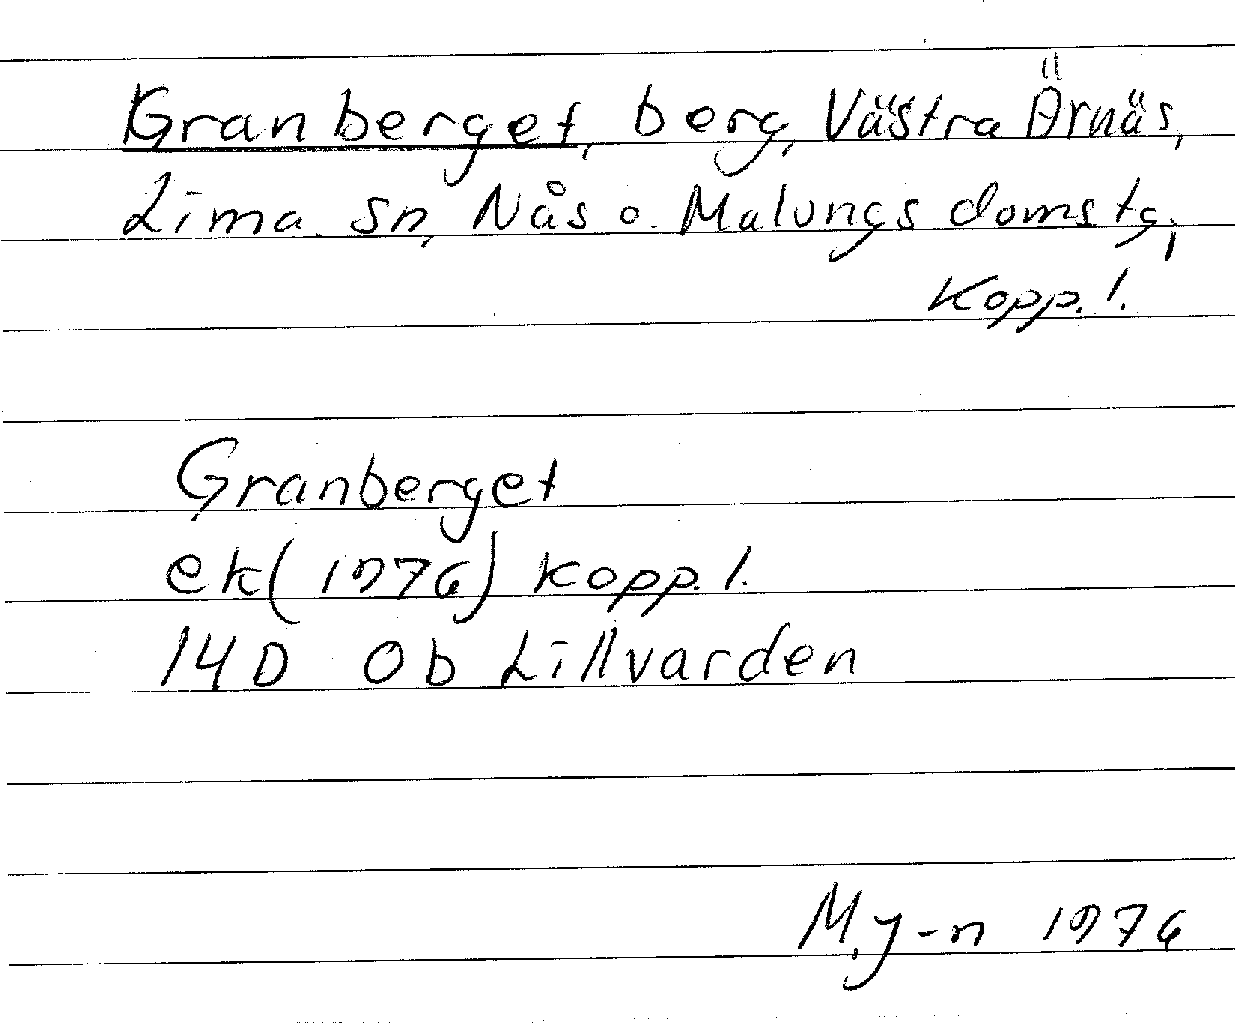 Granberget, berg, Västra Ärnäs,
Lima sn, Nås o. Malungs domstg,
Kopp. l.
Granberget
ek (1976) Kopp. l.
14D Ob Lillvarden
M.J-n 1976